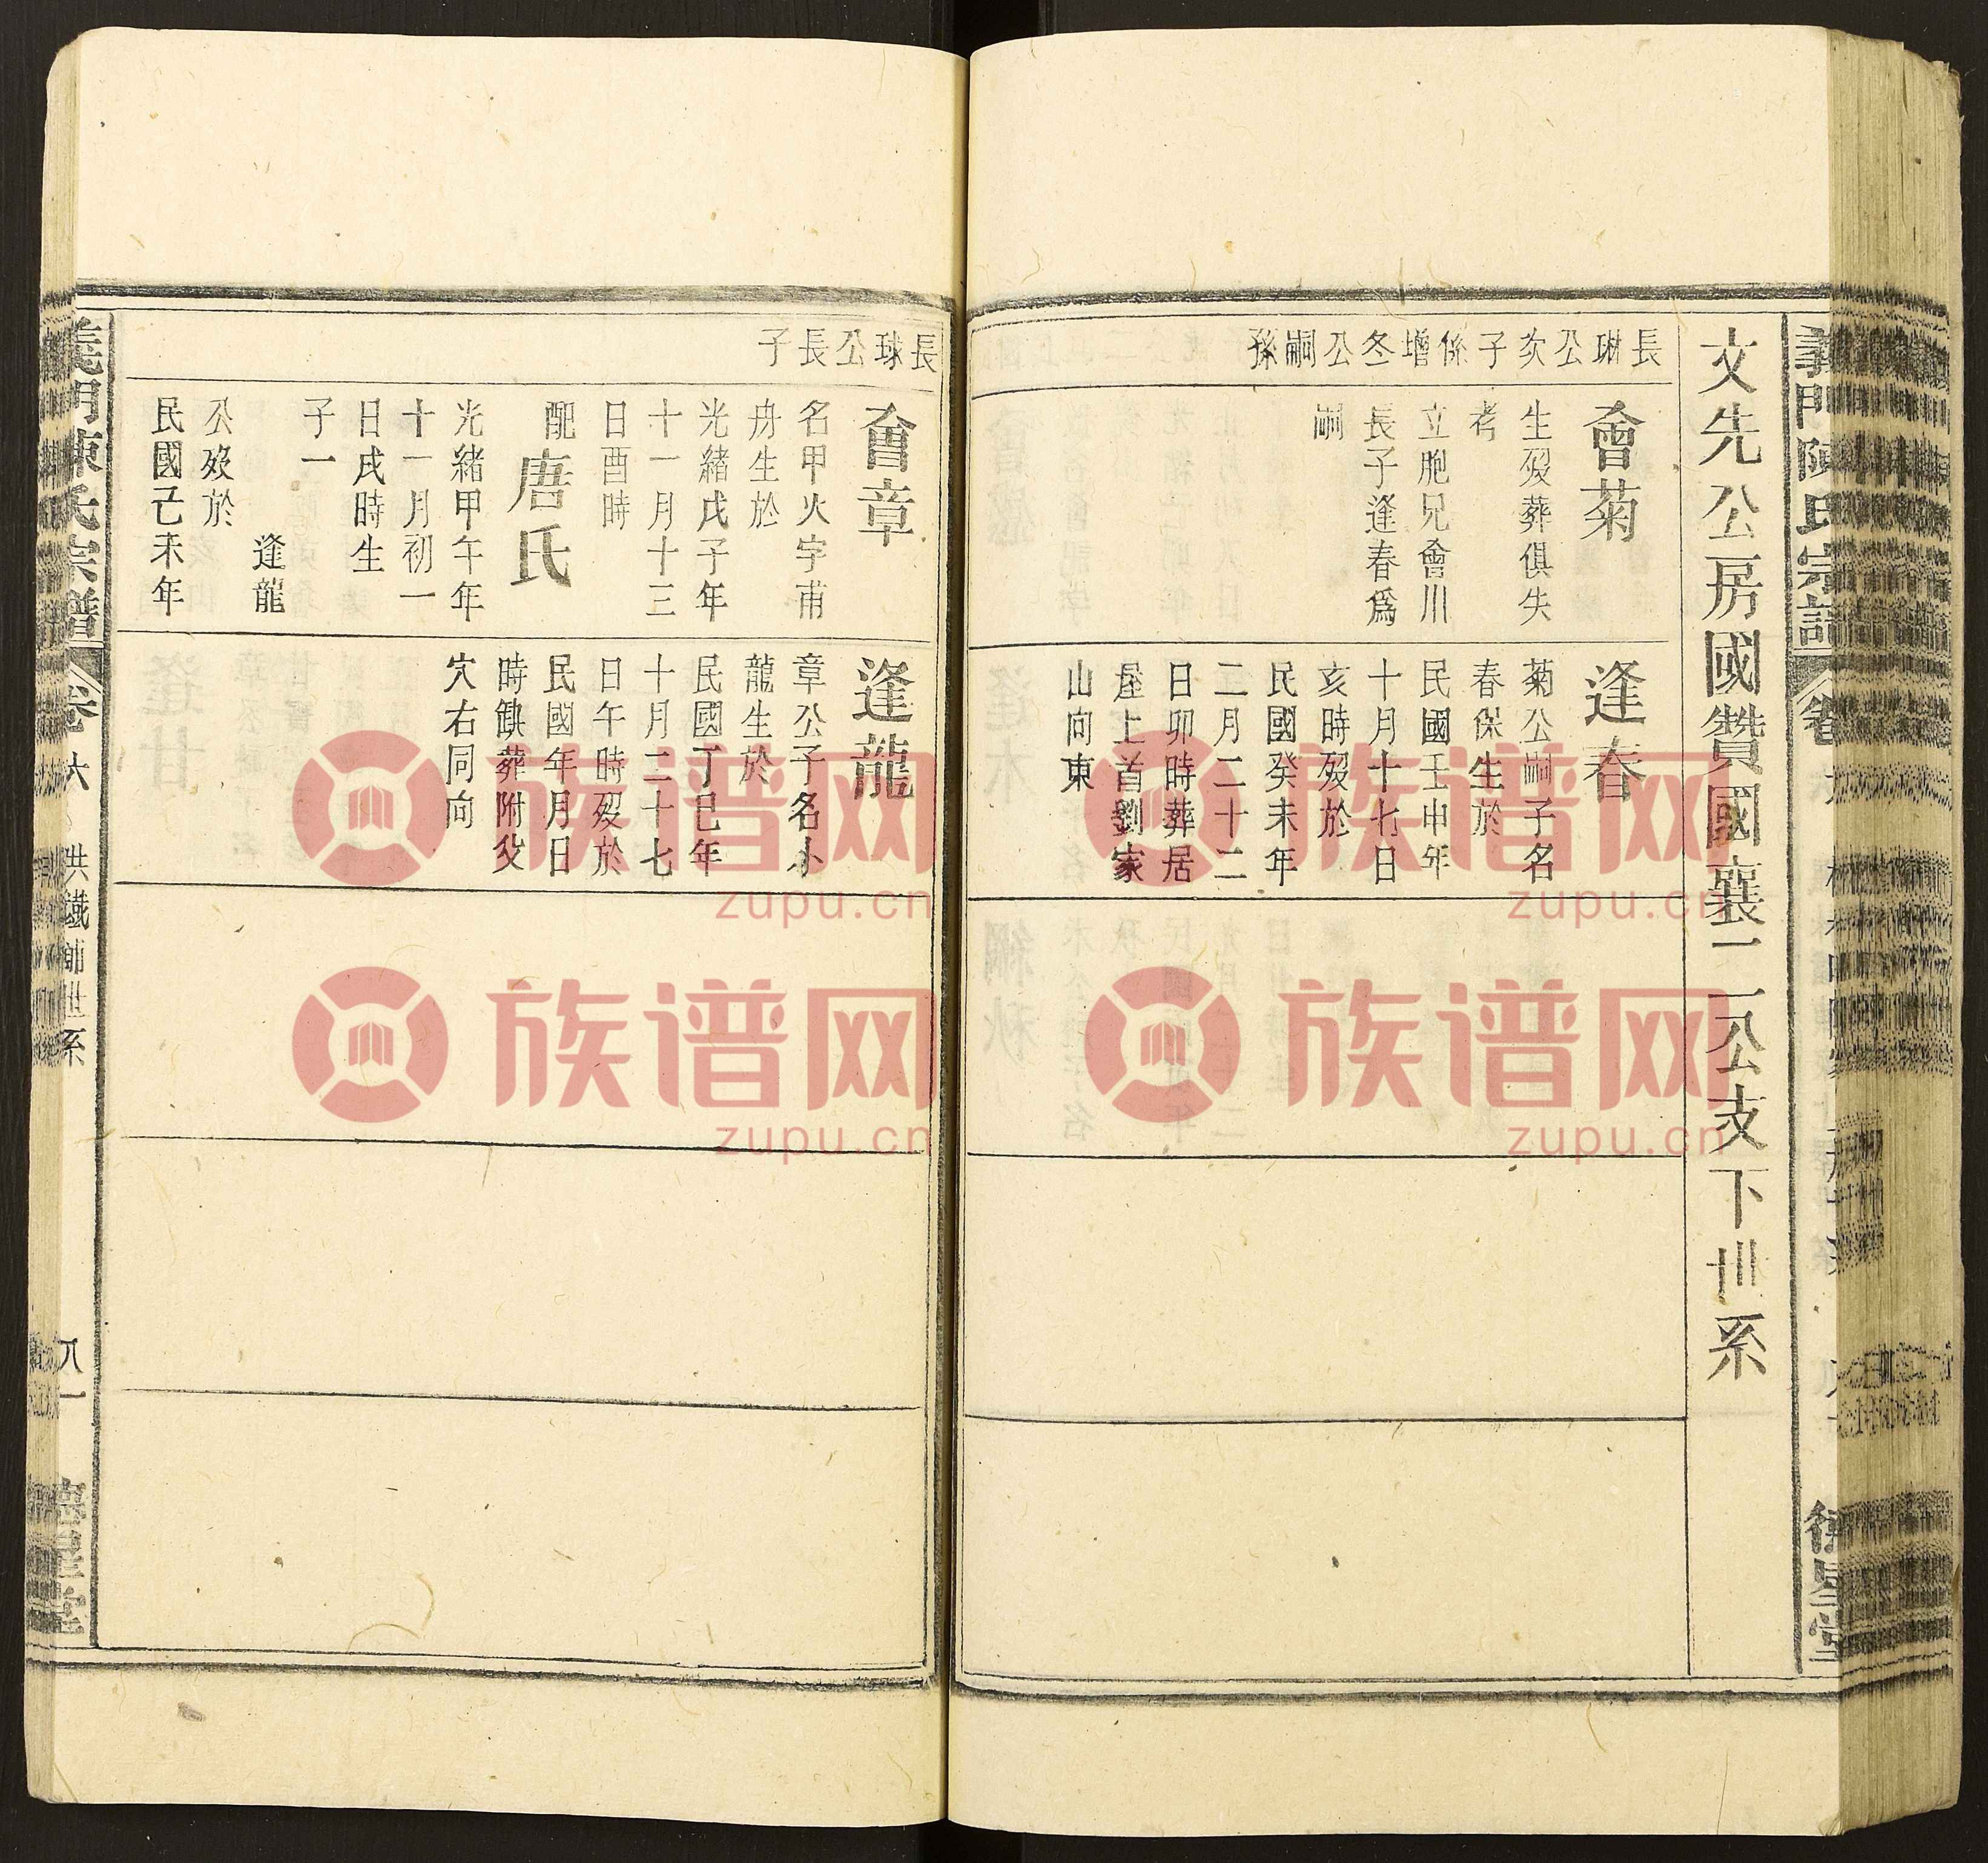 義門陳氏宗譜 卷
德星堂
文先公房國贊國襄二公支下世系
長琳公次子係增冬公嗣孫
會菊
生歿葬俱失
考
立胞兄會川
長子逢春為
嗣
逢春
菊公嗣子名
春保生於
民國壬申年
十月十七日
亥時歿於
民國癸未年
二月二十二
日卯時葬居
屋上首劉家
山向東
長球公長子
會章
名甲火字甫
舟生於
光緒戊子年
十一月十三
日酉時
配 唐氏
光緒甲午年
十一月初一
日戌時生
子一
逢龍
公歿於
民國己未年
逢龍
章公子名小
龍生於
民國丁巳年
十月二十七
日午時歿於
民國年月日
時缺葬附父
穴右同向
義門陳氏宗譜 卷六 洪鐵師世系 八一 德星堂
族谱网
zupu.cn
族谱网
zupu.cn
族谱网
zupu.cn
族谱网
zupu.cn